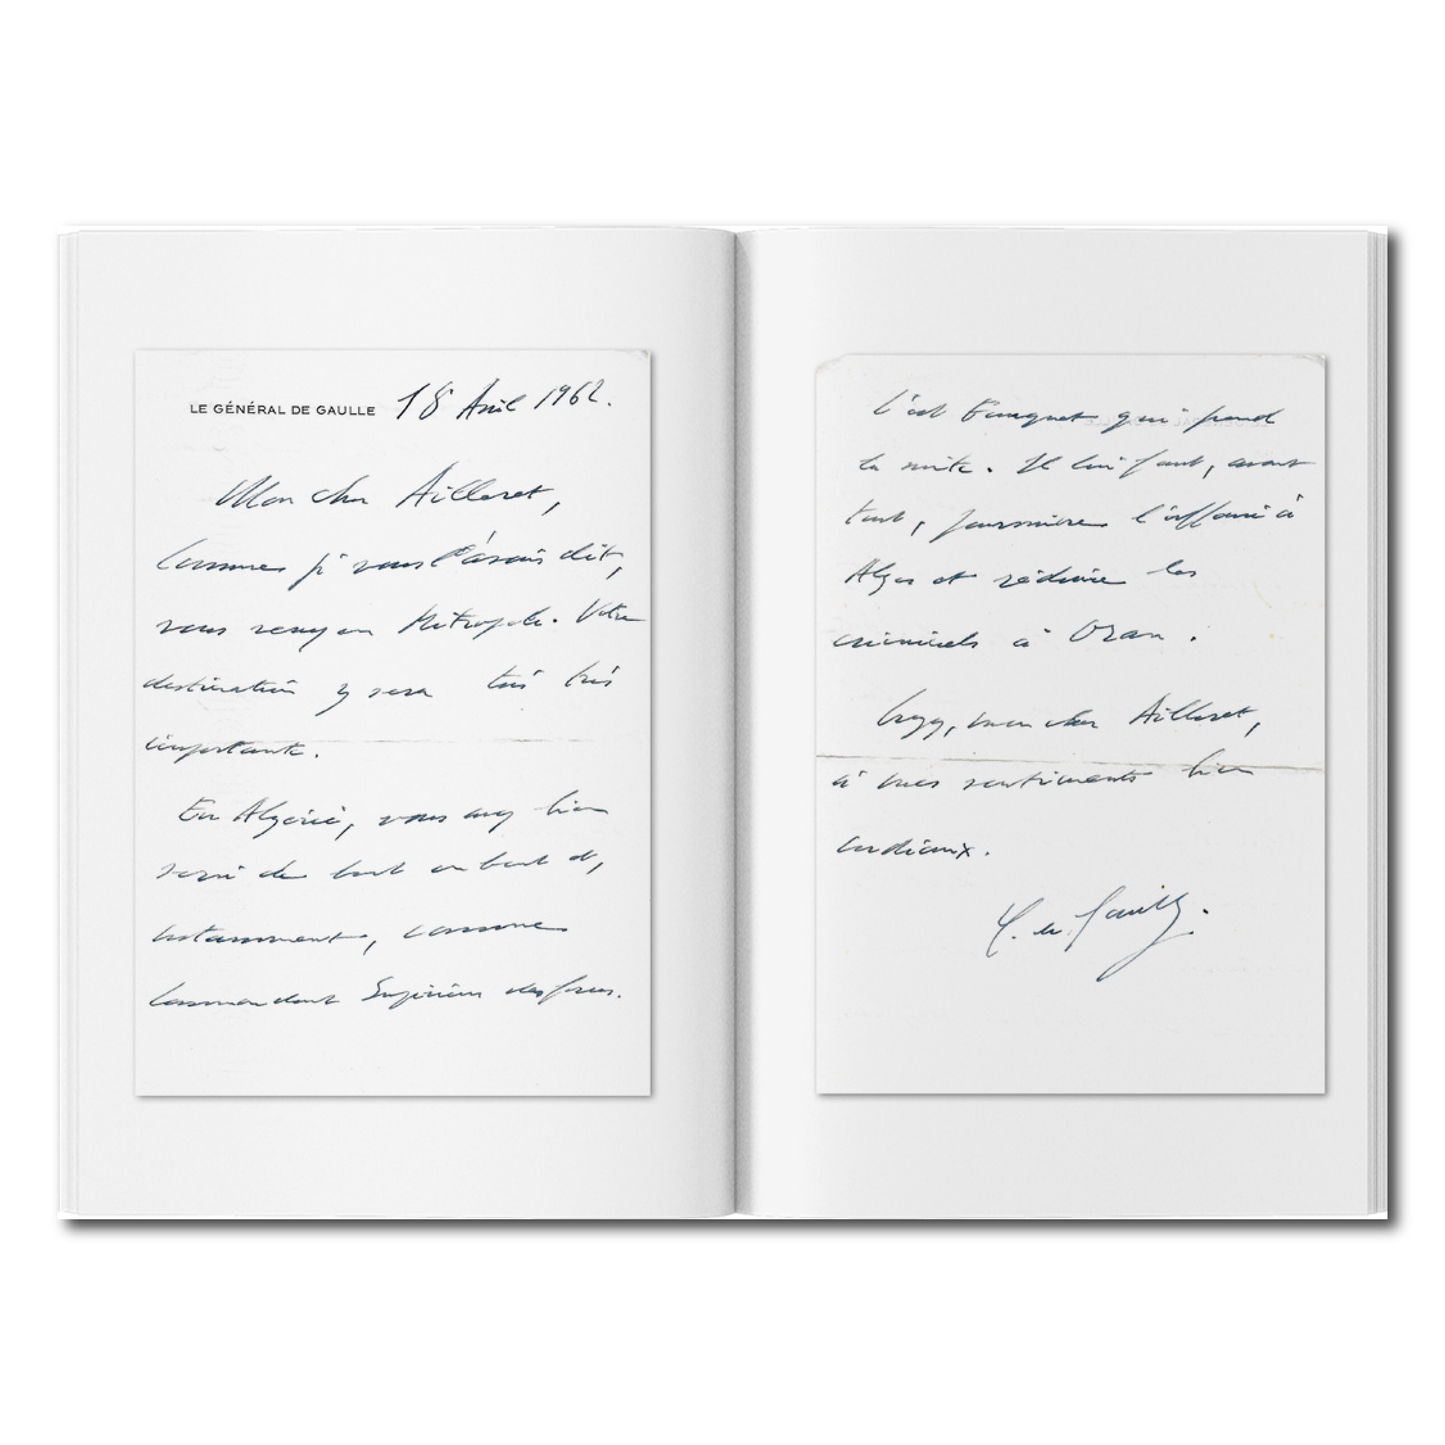 LE GÉNÉRAL DE GAULLE 18 Avril 1962.
Mon cher Ailleret,
Comme je vous l'avais dit,
vous venez en Métropole. Votre
destination y sera très très
importante.
En Algérie, vous avez bien
servi de bout en bout et,
notamment, comme
Commandant Supérieur des forces.
C'est Fouquet qui prend
la suite. Il lui faut, avant
tout, poursuivre l'affaire à
Alger et réduire les
criminels à Oran.
Croyez, mon cher Ailleret,
à mes sentiments bien
cordiaux.
C. de Gaulle.